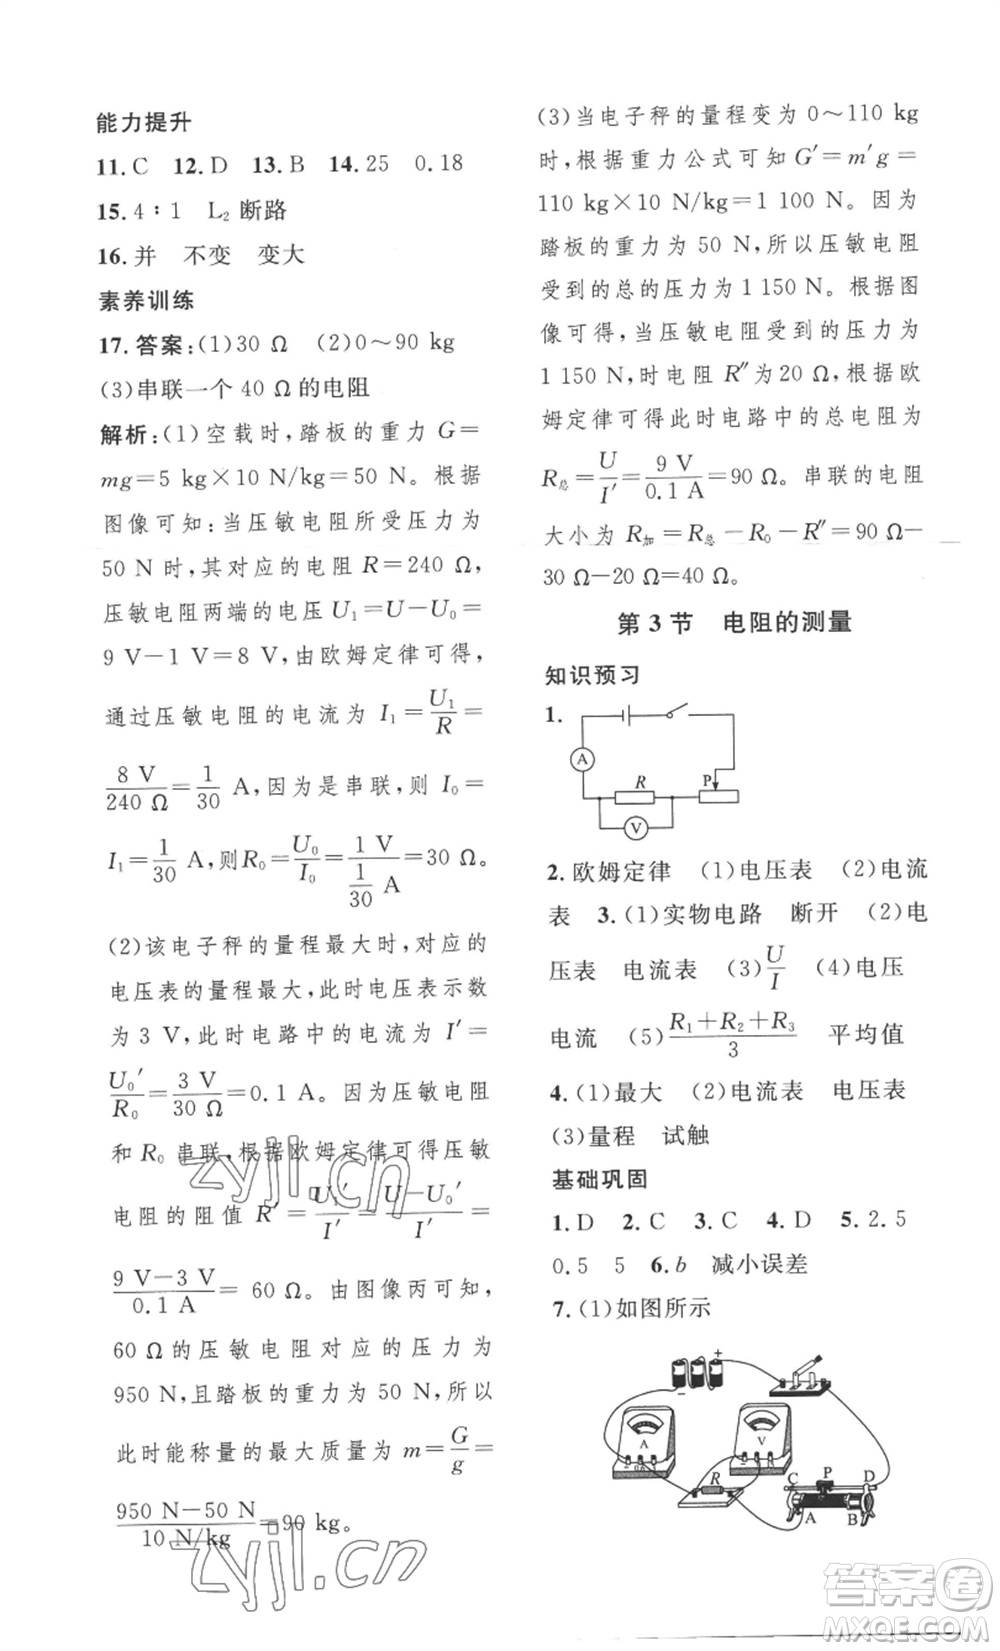 能力提升
11. C 12. D 13. B 14. 25 0.18
15. 4∶1 L₂ 断路
16. 并 不变 变大
素养训练
17. 答案:(1)30 Ω (2)0～90 kg
(3)串联一个 40 Ω 的电阻
解析:(1)空载时,踏板的重力 G=
mg=5 kg×10 N/kg=50 N。根据
图像可知:当压敏电阻所受压力为
50 N 时,其对应的电阻 R=240 Ω,
压敏电阻两端的电压 U₁=U-U₀=
9 V-1 V=8 V,由欧姆定律可得,
通过压敏电阻的电流为 I₁=U₁/R=
8 V/240 Ω=1/30 A,因为是串联,则 I₀=
I₁=1/30 A,则R₀=U₀/I₀=1 V/(1/30 A)=30 Ω。
(2)该电子秤的量程最大时,对应的
电压表的量程最大,此时电压表示数
为 3 V,此时电路中的电流为 I′=
U₀′/R₀=3 V/30 Ω=0.1 A。因为压敏电阻
和 R₀ 串联,根据欧姆定律可得压敏
电阻的阻值 R′=U₁′/I′=(U-U₀′)/I′=
(9 V-3 V)/0.1 A=60 Ω。由图像丙可知,
60 Ω 的压敏电阻对应的压力为
950 N,且踏板的重力为 50 N,所以
此时能称量的最大质量为 m=G/g=
(950 N-50 N)/(10 N/kg)=90 kg。
(3)当电子秤的量程变为 0～110 kg
时,根据重力公式可知 G′=m′g=
110 kg×10 N/kg=1 100 N。因为
踏板的重力为 50 N,所以压敏电阻
受到的总的压力为 1 150 N。根据图
像可得,当压敏电阻受到的压力为
1 150 N,时电阻 R″为 20 Ω,根据欧
姆定律可得此时电路中的总电阻为
R总=U/I′=9 V/0.1 A=90 Ω。串联的电阻
大小为 R加=R总-R₀-R″=90 Ω-
30 Ω-20 Ω=40 Ω。
第 3 节 电阻的测量
知识预习
1.
A
R
P
V
2. 欧姆定律 (1)电压表 (2)电流
表 3. (1)实物电路 断开 (2)电
压表 电流表 (3)U/I (4)电压
电流 (5)(R₁+R₂+R₃)/3 平均值
4. (1)最大 (2)电流表 电压表
(3)量程 试触
基础巩固
1. D 2. C 3. C 4. D 5. 2.5
0.5 5 6. b 减小误差
7. (1)如图所示
+
-
A
V
R
C P D
A B
zyjl.cn
zyjl.cn
答案卷
MXQE.COM